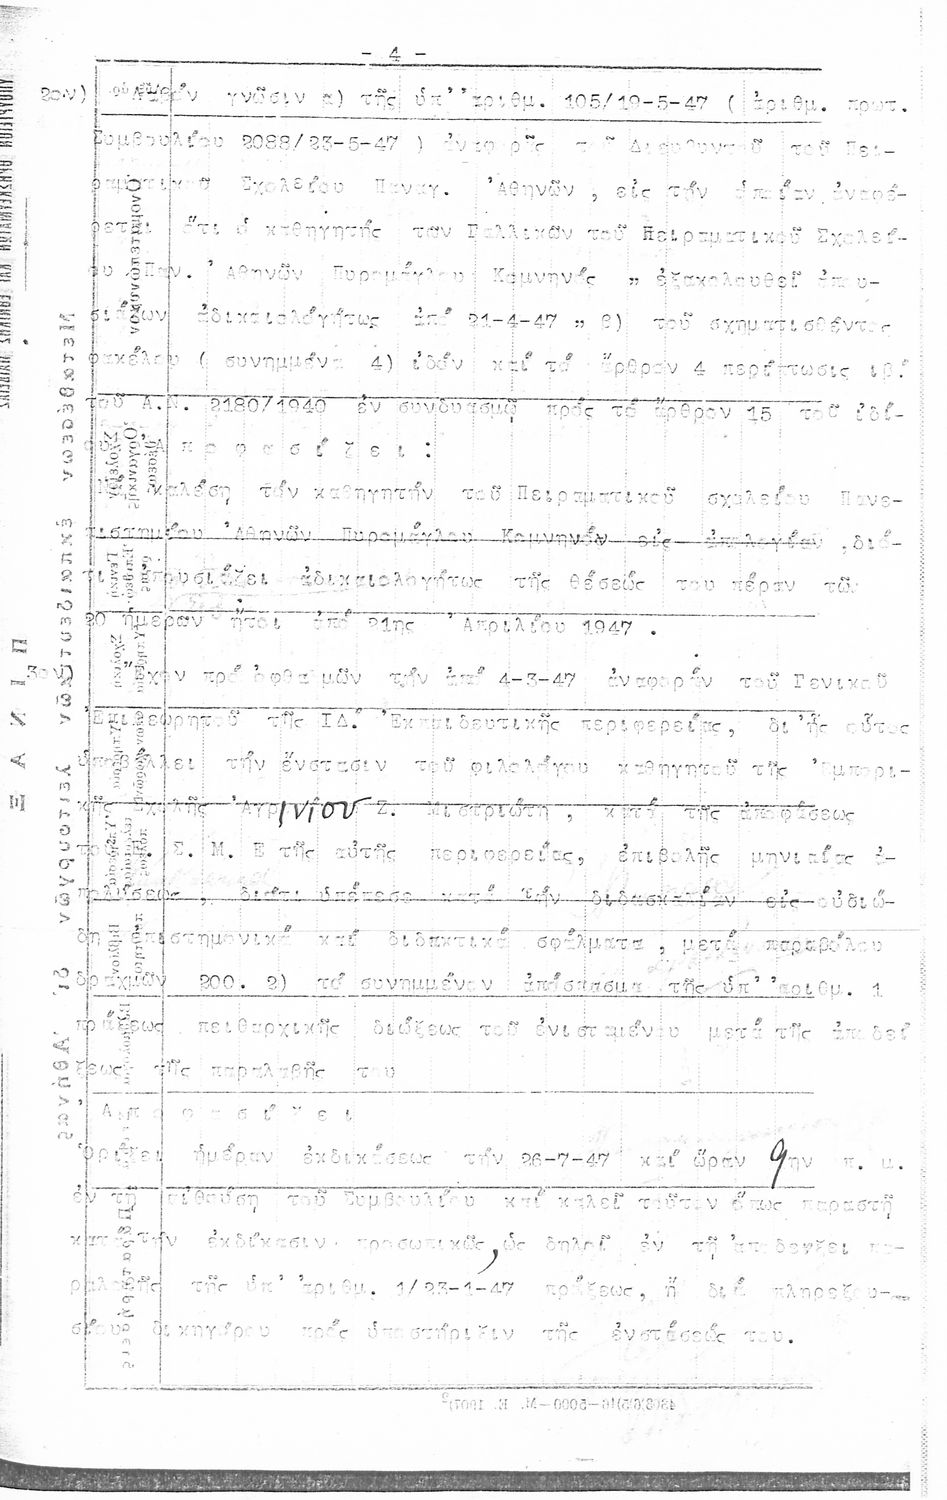 - 4 -
2ον) Λαβόν γνῶσιν α) τῆς ὑπ' ἀριθμ. 105/19-5-47 ( ἀριθμ. πρωτ.
Συμβουλίου 2088/23-5-47 ) ἀναφορᾶς τοῦ Διευθυντοῦ τοῦ Πει-
ραματικοῦ Σχολείου Παναγ. Ἀθηνῶν, εἰς τήν ὁποίαν ἀναφέ-
ρεται ὅτι ὁ καθηγητής των Γαλλικῶν τοῦ Πειραματικοῦ Σχολεί-
ου Παν. Ἀθηνῶν Πυρομάγλου Κομνηνός „ ἐξακολουθεῖ ἀπου-
σιάζων ἀδικαιολογήτως ἀπό 21-4-47 „ β) τοῦ σχηματισθέντος
φακέλου ( συνημμένα 4) ἰδόν καί τό ἄρθρον 4 περίπτωσις ιβ΄
τοῦ Α.Ν. 2180/1940 ἐν συνδυασμῷ πρός τό ἄρθρον 15 τοῦ ἰδί-
ου Ἀ π ο φ α σ ί ζ ε ι :
Νά καλέση τόν καθηγητήν τοῦ Πειραματικοῦ σχολείου Πανε-
πιστημίου Ἀθηνῶν Πυρομάγλου Κομνηνόν εἰς ἀπολογίαν ,διό-
τι ἀπουσιάζει ἀδικαιολογήτως τῆς θέσεώς του πέραν τῶν
20 ἡμερῶν ἤτοι ἀπό 21ης Ἀπριλίου 1947 .
3ον) Ἔχον πρό ὀφθαλμῶν τήν ἀπό 4-3-47 ἀναφοράν τοῦ Γενικοῦ
Ἐπιθεωρητοῦ τῆς ΙΔ΄ Ἐκπαιδευτικῆς περιφερείας, δι' ἧς οὗτος
ὑποβάλλει τήν ἔνστασιν τοῦ φιλολόγου καθηγητοῦ τῆς Ἐμπορι-
κῆς Σχολῆς Ἀγρινίου Ζ. Μιστριώτη , κατά τῆς ἀποφάσεως
τοῦ Σ. Μ. Ε τῆς αὐτῆς περιφερείας, ἐπιβολῆς μηνιαίας ἀ-
πολύσεως , διότι ὑπέπεσε κατά τήν διδασκαλίαν εἰς οὐσιώ-
δη ἐπιστημονικά καί διδακτικά σφάλματα , μετά παραβόλου
δραχμῶν 200. 2) τό συνημμένον ἀπόσπασμα τῆς ὑπ' ἀριθμ. 1
πράξεως πειθαρχικῆς διώξεως τοῦ ἐνισταμένου μετά τῆς ἀποδεί
ξεως τῆς παραλαβῆς του
Ἀ π ο φ α σ ί ζ ε ι
Ὁρίζει ἡμέραν ἐκδικάσεως τήν 26-7-47 καί ὥραν 9ην π. μ.
ἐν τῇ αἰθούσῃ τοῦ Συμβουλίου καί καλεῖ τοῦτον ὅπως παραστῇ
κατά τήν ἐκδίκασιν προσωπικῶς, ὡς δηλοῖ ἐν τῇ ἀποδείξει πα-
ραλαβῆς τῆς ὑπ' ἀριθμ. 1/23-1-47 πράξεως, ἤ διά πληρεξου-
σίου δικηγόρου πρός ὑποστήριξιν τῆς ἐνστάσεώς του.